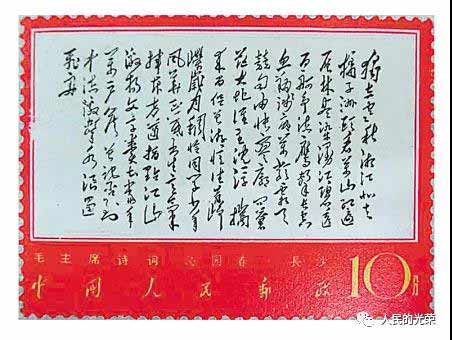 独立寒秋湘江北去
橘子洲头看万山红遍
层林尽染漫江碧透
百舸争流鹰击长空
鱼翔浅底万类霜天
竞自由怅寥廓问
苍茫大地谁主沉浮 携
来百侣曾游忆往昔峥
嵘岁月稠恰同学少年
风华正茂书生意气
挥斥方遒指点江山
激扬文字粪土当年
万户侯曾记否到
中流击水浪遏
飞舟
毛主席诗词 沁园春·長沙
中国人民邮政 10分
人民的光荣